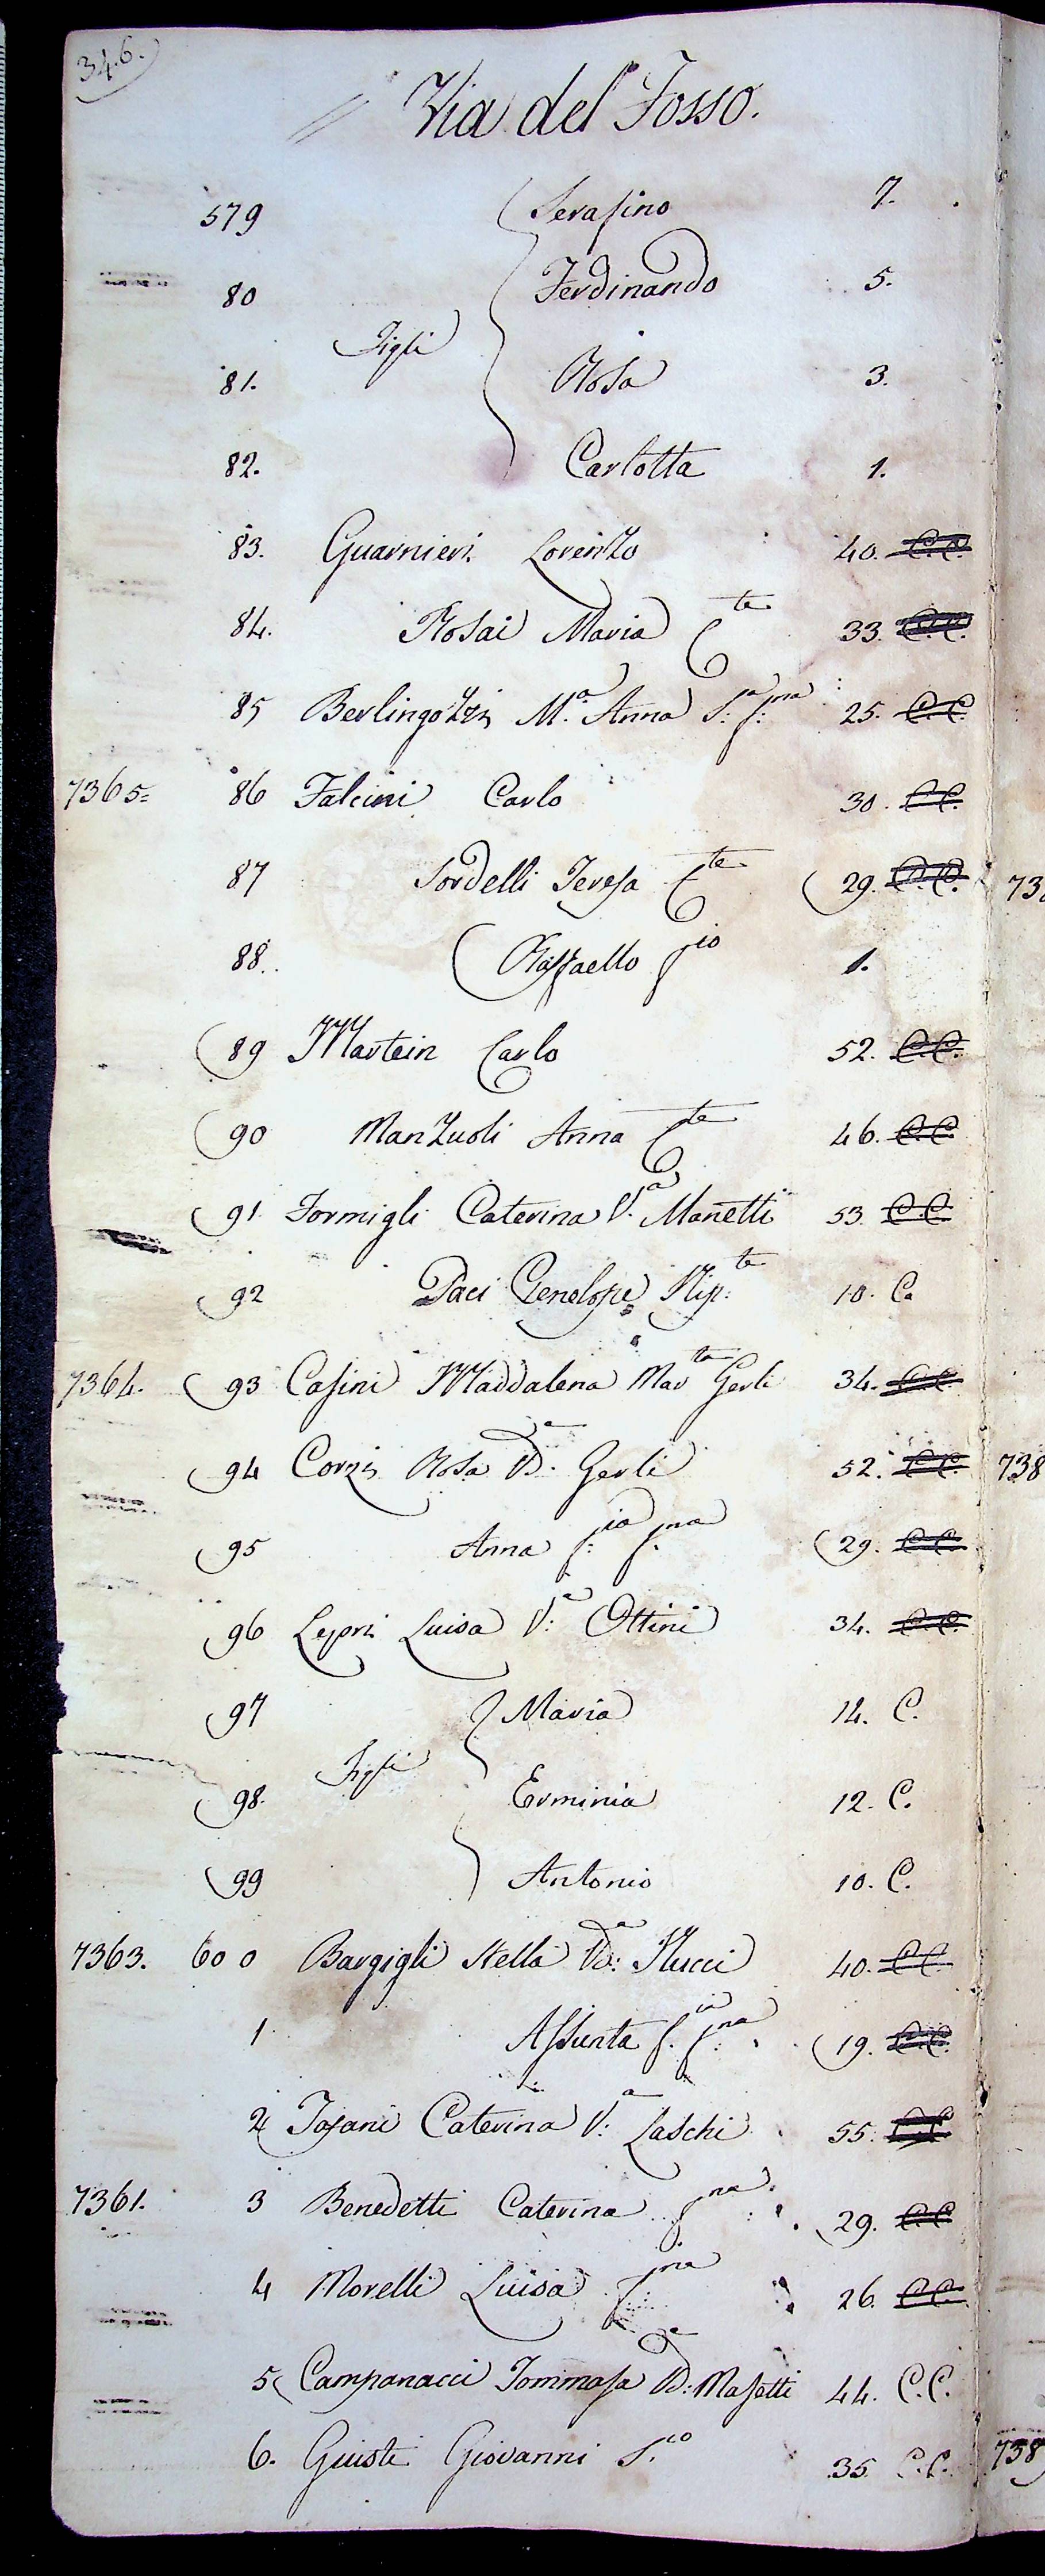 346.
Via del Fosso.
579 Serafino 7.
80 Ferdinando 5.
Figli
81. Rosa 3.
82. Carlotta 1.
83. Guarnieri Lorenzo 40. C.C.
84. Rosai Maria Cte 33. C.C.
85 Berlingozzi M.a Anna S.a f.na 25. C.C.
7365= 86 Falcini Carlo 30. C.C.
87 Sordelli Teresa Cte 29. C.C. 73
88. Raffaello fio 1.
89 Martein Carlo 52. C.C.
90 Manzuoli Anna Cte 46. C.C.
91 Formigli Caterina V.a Manetti 53. C.C.
92 Paci Penelope Nip.te 10. C.
7364. 93 Casini Maddalena Marta Gerli 34. C.C.
94 Corzi Rosa Va. Gerli 52. C.C. 738
95 Anna f.ia f.na 29. C.C.
96 Lepri Luisa V.a Ottini 34. C.C.
97 Maria 14. C.
Figli
98. Erminia 12. C.
99 Antonio 10. C.
7363. 600 Bargigli Stella Va: Nucci 40. C.C.
1 Assunta f.ia f.na 19. C.C.
2 Tofani Caterina V.a Laschi 55. C.C.
7361. 3 Benedetti Caterina fna 29. C.C.
4 Morelli Luisa f.na 26. C.C.
5 Campanacci Tommasa Va: Masetti 44. C.C.
6. Giusti Giovanni S.io 35 C.C. 738